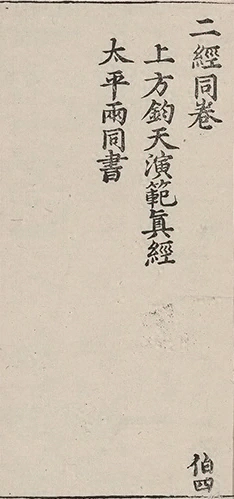 二經同卷
上方鈞天演範眞經
太平兩同書
伯四